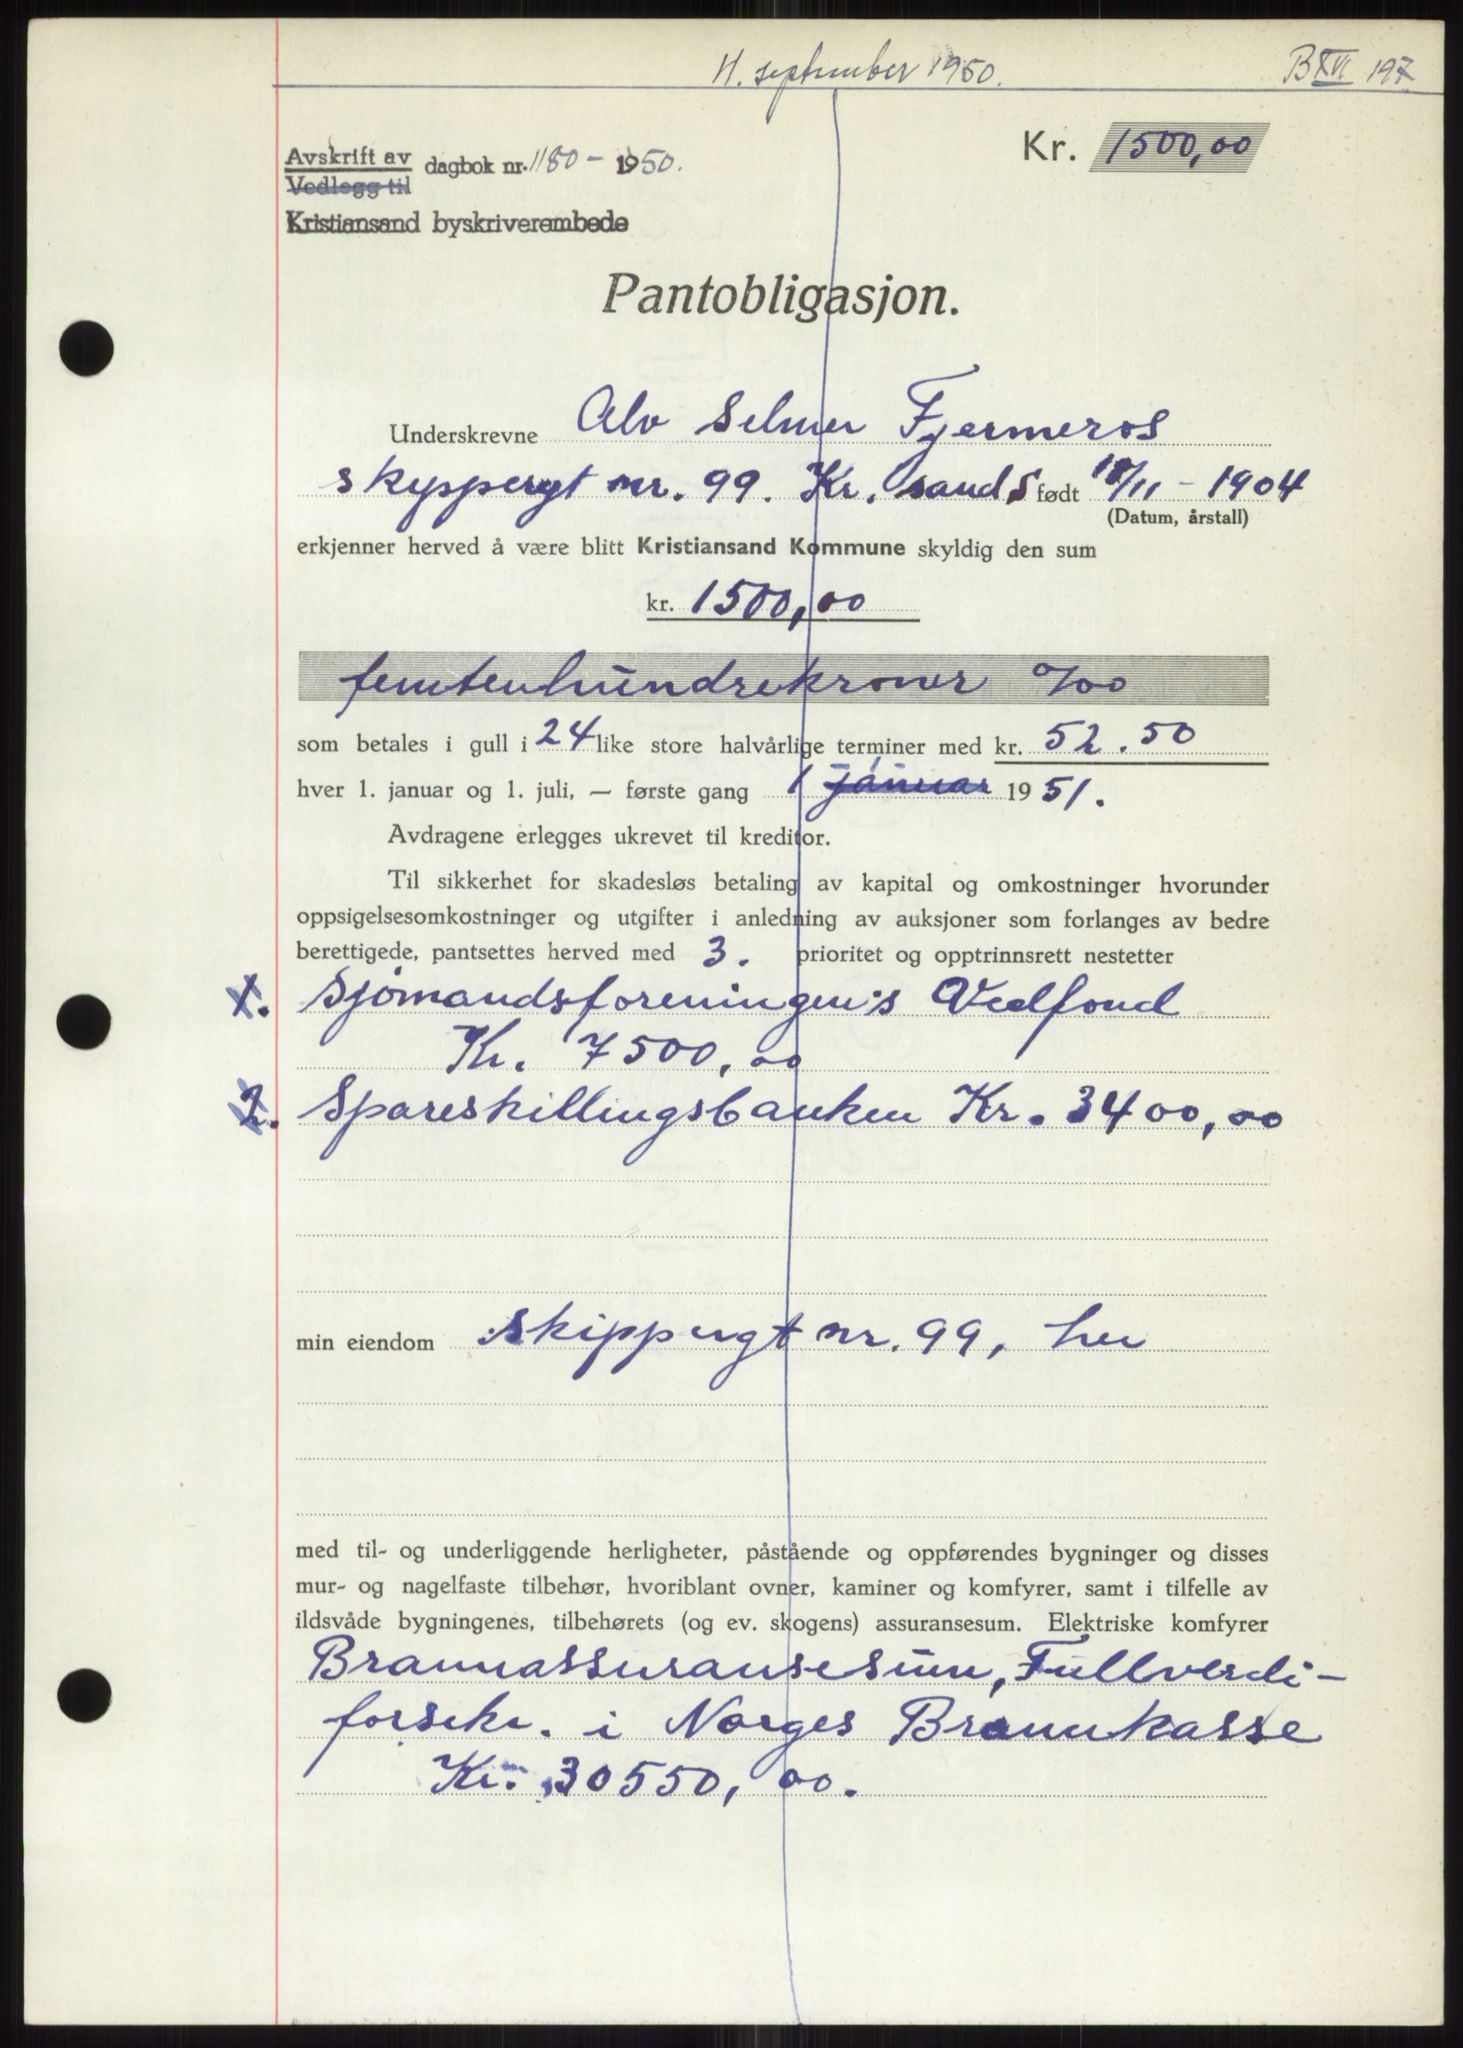 11. september 1950.
B XVI 197
Kr. 1500,00
Avskrift av
Vedlegg til
dagbok nr. 1180 - 1950.
Kristiansand byskriverembede
Pantobligasjon.
Underskrevne Alv Selmer Fjermeros
skyppergt nr. 99. Kr. sand S født 18/11 - 1904
(Datum, årstall)
erkjenner herved å være blitt Kristiansand Kommune skyldig den sum
kr. 1500,00
femtenhundrekroner 0/00
som betales i gull i 24 like store halvårlige terminer med kr. 52.50
hver 1. januar og 1. juli, — første gang 1 januar 1951.
Avdragene erlegges ukrevet til kreditor.
Til sikkerhet for skadesløs betaling av kapital og omkostninger hvorunder
oppsigelsesomkostninger og utgifter i anledning av auksjoner som forlanges av bedre
berettigede, pantsettes herved med 3. prioritet og opptrinnsrett nestetter
1. Sjømandsforeningen's Vedfond
Kr. 7500,00
2. Spareskillingsbanken Kr. 3400,00
min eiendom skippergt nr. 99, her
med til- og underliggende herligheter, påstående og oppførendes bygninger og disses
mur- og nagelfaste tilbehør, hvoriblant ovner, kaminer og komfyrer, samt i tilfelle av
ildsvåde bygningenes, tilbehørets (og ev. skogens) assuransesum. Elektriske komfyrer
Brannassuransesum, Fullverdi-
forsikr. i Norges Brannkasse
Kr. 30550,00.